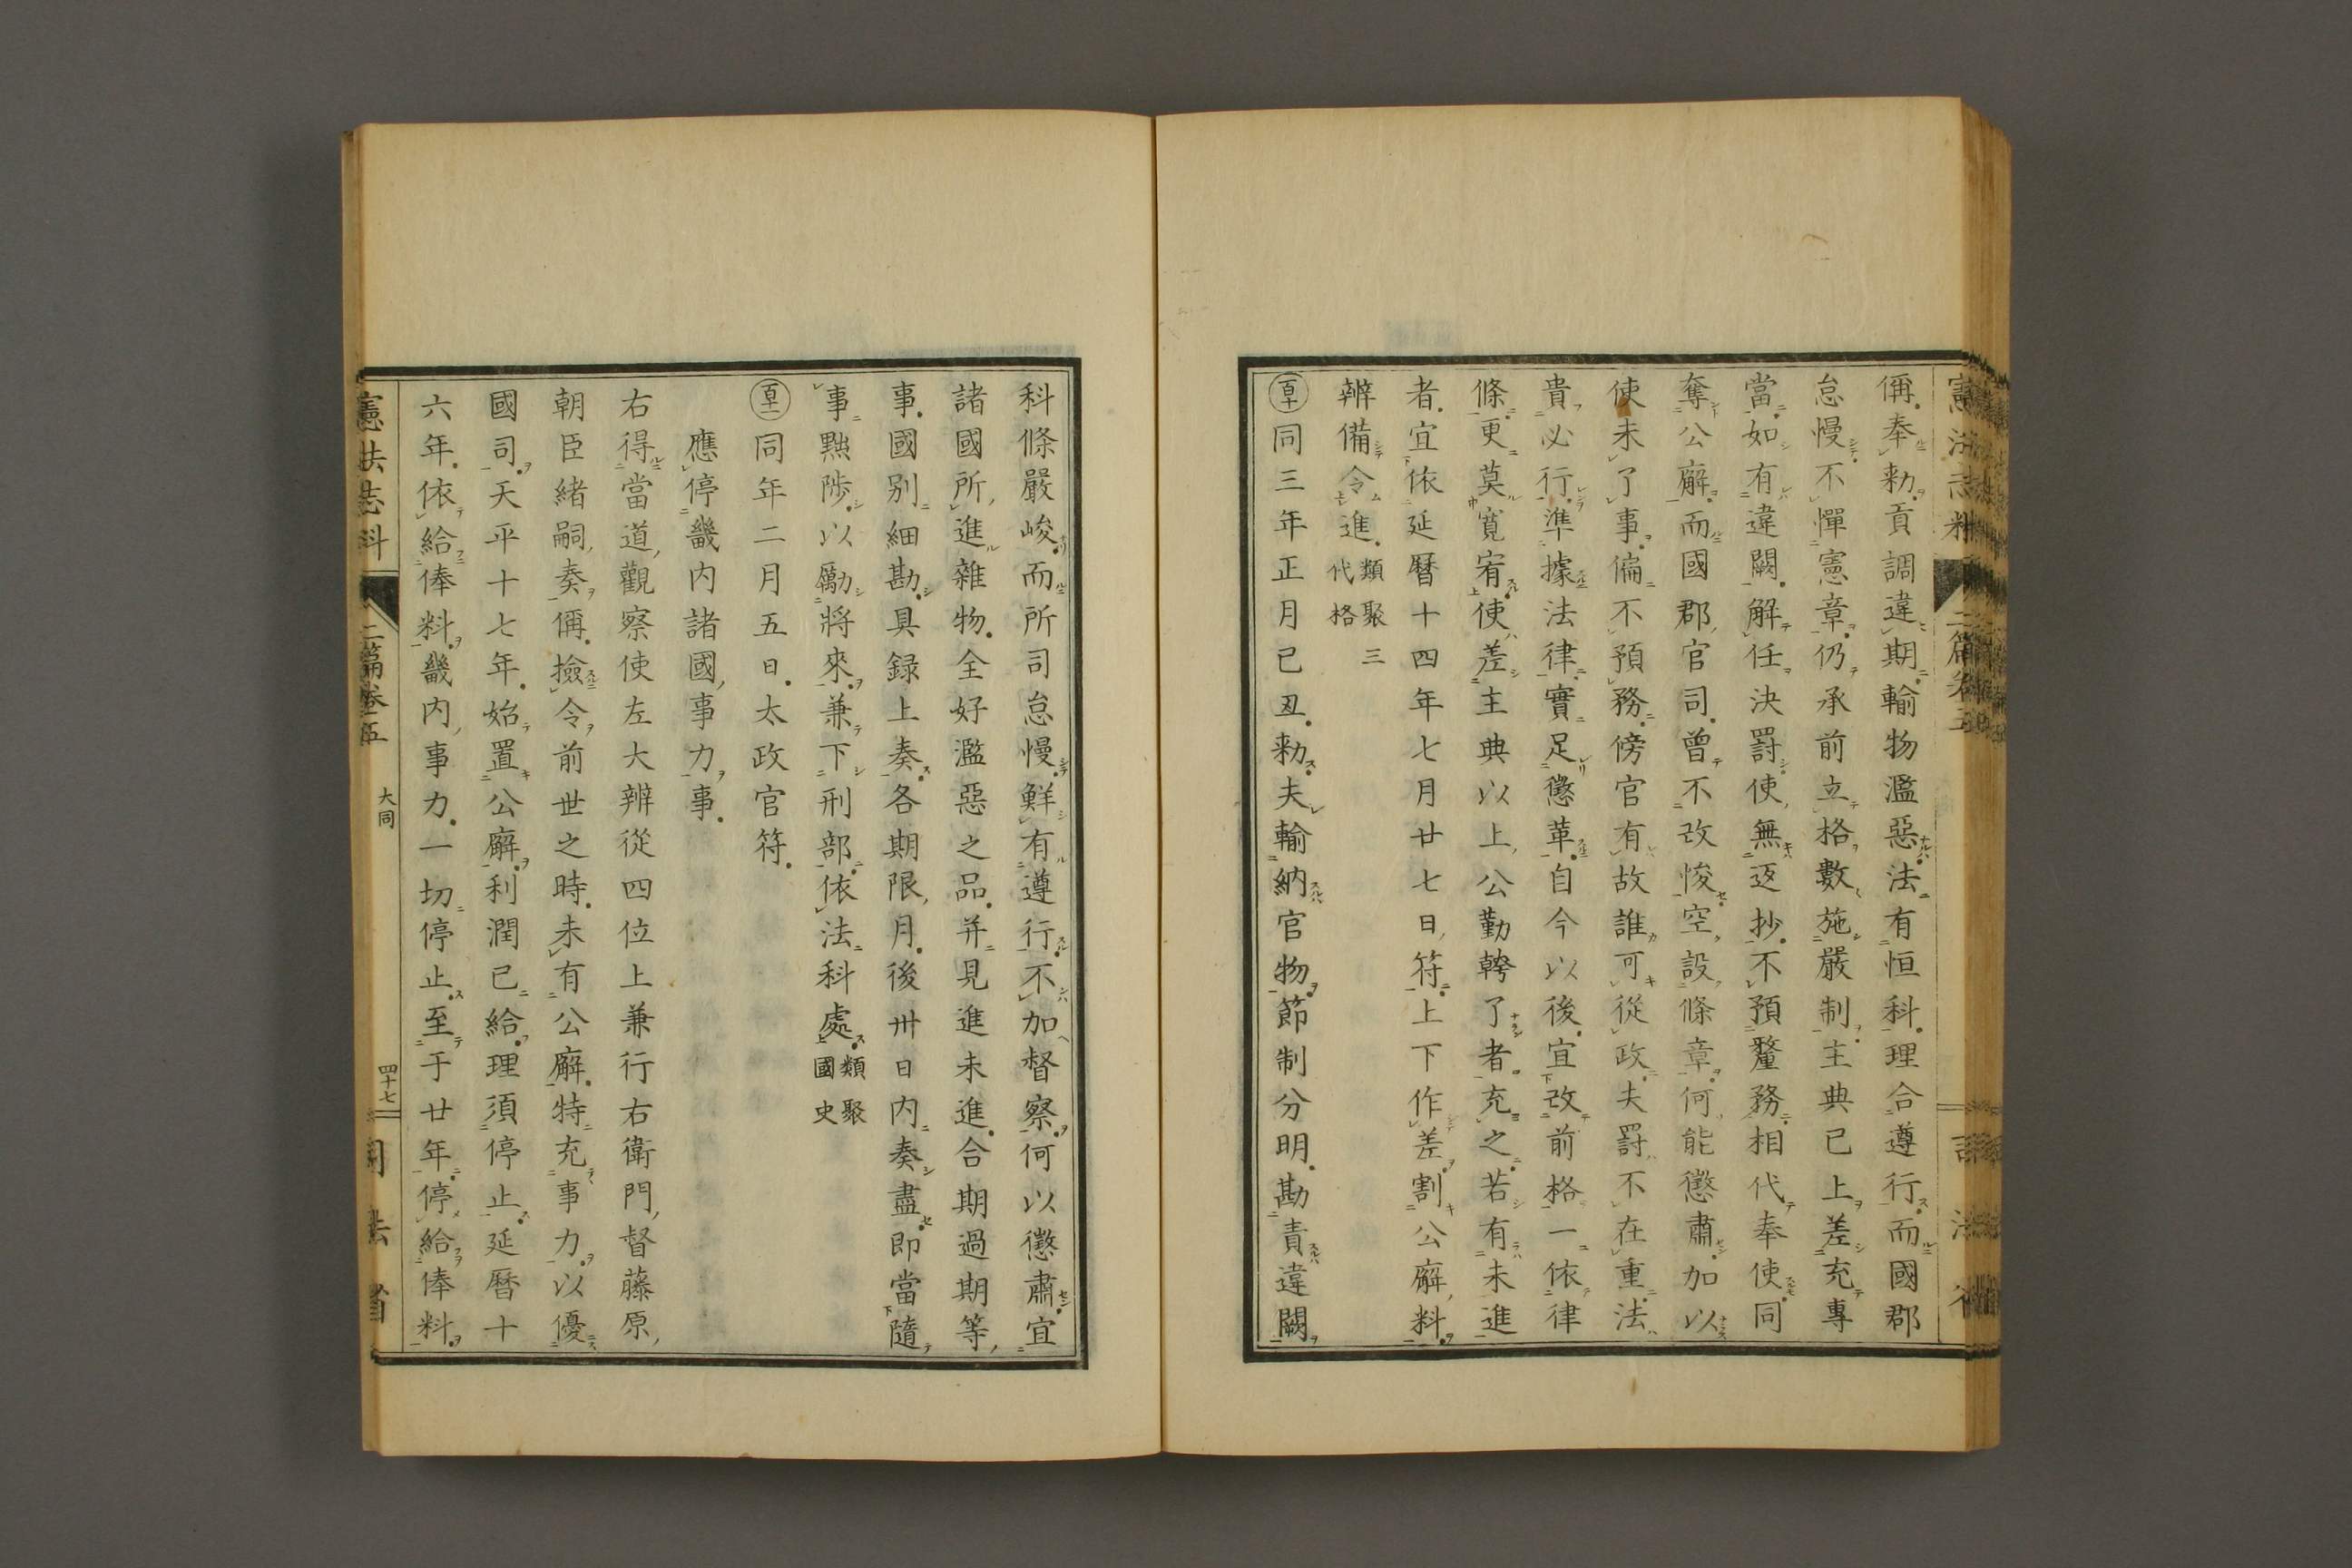 偁奉勅貢調違期輸物濫惡法有恒科理合遵行而國郡
怠慢不憚憲章仍承前立格數施嚴制主典已上差充專
當如有違闕解任決罸使無返抄不預釐務相代奉使同
奪公廨而國郡官司曾不改悛空設條章何能懲肅加以
使未了事偏不預務傍官有故誰可從政夫罸不在重法
貴必行準據法律實足懲革自今以後宜改前格一依律
條更莫寛宥使差主典以上公勤幹了者充之若有未進
者宜依延曆十四年七月廿七日符上下作差割公廨料
辨備令進類聚三
代格
同三年正月己丑勅夫輸納官物節制分明勘責違闕
科條嚴峻而所司怠慢鮮有遵行不加督察何以懲肅宜
諸國所進雜物全好濫惡之品并見進未進合期過期等
事國別細勘具録上奏各期限月後卅日内奏盡即當隨
事黜陟以勵將來兼下刑部依法科處類聚
國史
同年二月五日太政官符
應停畿内諸國事力事
右得當道觀察使左大辨從四位上兼行右衛門督藤原
朝臣緒嗣奏偁撿令前世之時未有公廨特充事力以優
國司天平十七年始置公廨利潤已給理須停止延曆十
六年依給俸料畿内事力一切停止至于廿年停給俸料
憲法志料
二篇卷五
大同
四十七
司法省